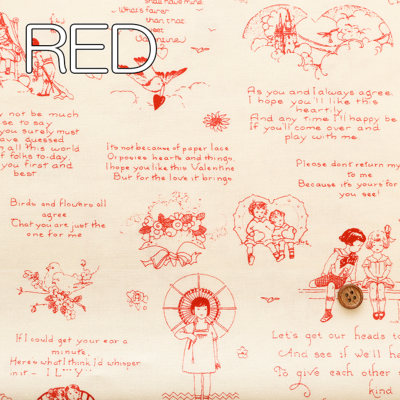 RED
that have mine
What's fairer
than that
Valentine
As you and I always agree
I hope you'll like this
heartily
And any time I'll happy be
If you'll come over and
play with me
y not be much
se to say
you surely must
have guessed
n all this world
t folks to-day,
you first and
best
it's not because of paper lace
Or posies hearts and things,
I hope you like this Valentine
But for the love it brings
Please don't return my
to me
Because it's yours for
you see!
Birds and flowers all
agree
That you are just the
one for me
If I could get your ear a
minute,
Here's what I think I'd whisper
in it - I L...Y
Let's get our heads to
And see if we'll ha
To give each other
kind